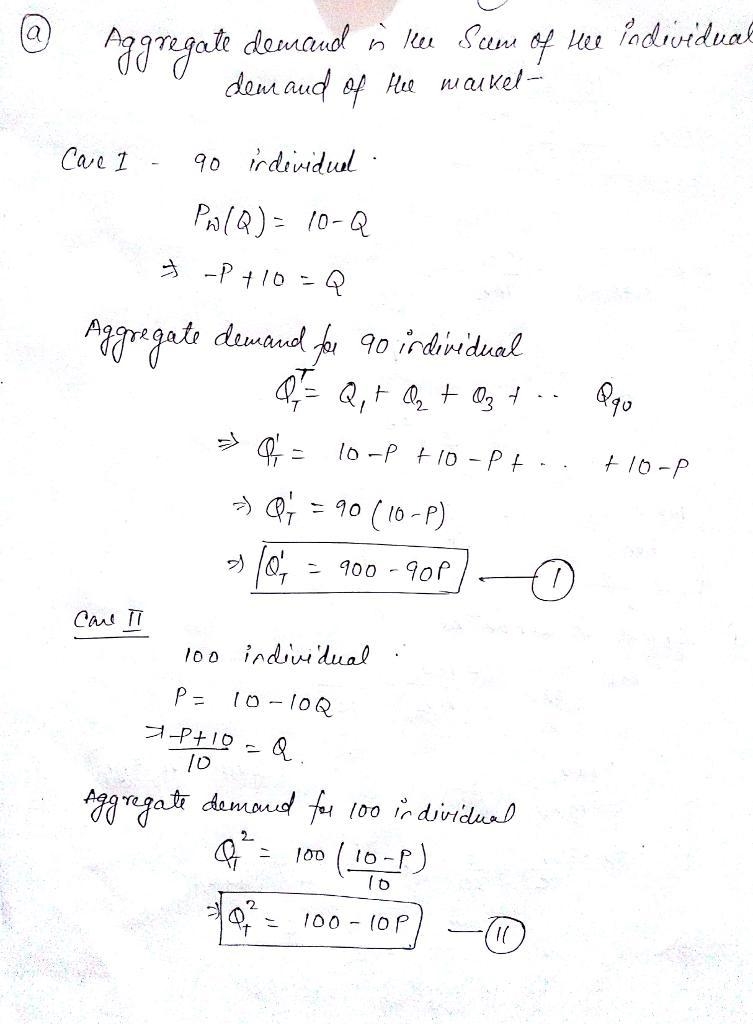 (a) Aggregate demand is the Sum of the individual
demand of the market-
Case I - 90 individual.
Pw(Q) = 10-Q
⇒ -P +10 = Q
Aggregate demand for 90 individual
Q_T^T = Q₁ + Q₂ + Q₃ + .. Q₉₀
⇒ Q_T^1 = 10-P +10-P + .. +10-P
⇒ Q_T^1 = 90 (10-P)
⇒ Q_T^1 = 900 - 90P — (I)
Case II
100 individual.
P = 10-10Q
⇒ (-P+10)/10 = Q.
Aggregate demand for 100 individual
Q_T^2 = 100 ((10-P)/10)
⇒ Q_T^2 = 100 - 10P — (II)